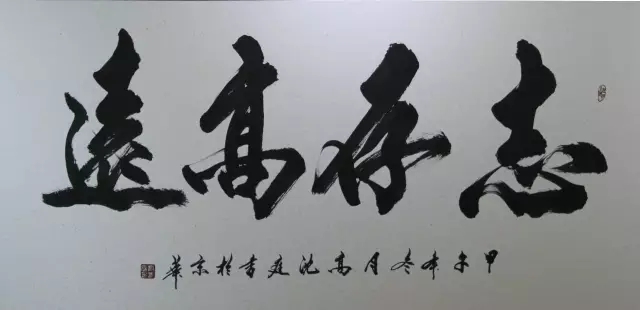 志存高遠
甲午年冬月高 書於京華